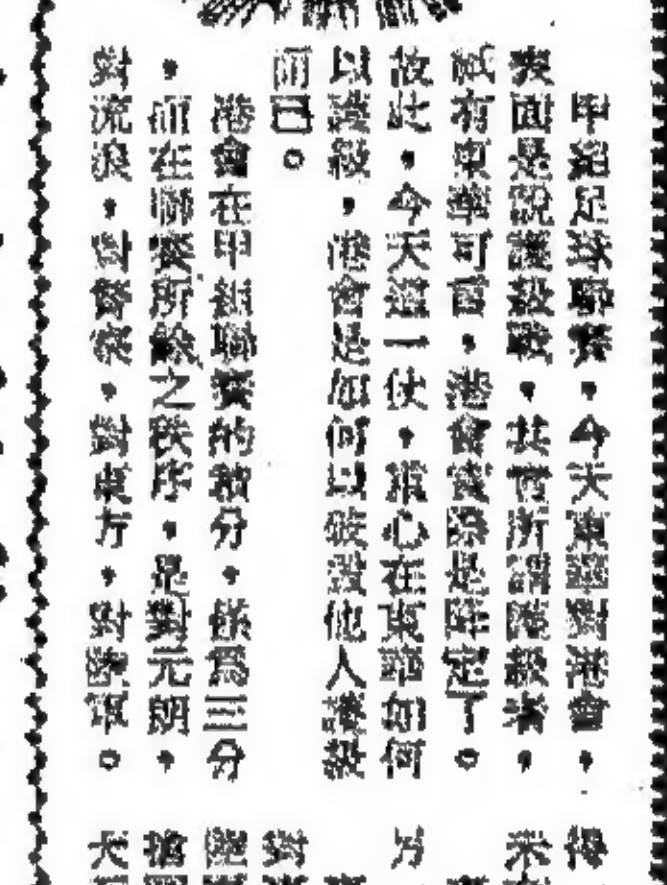 甲組足球聯賽，今天東華對港會，
表面是說護級戰，其實所謂降級者，
祇有東華可言，港會實際是降定了。
故此，今天這一仗，重心在東華如何
以護級，港會是如何以破毀他人護級
而已。
港會在甲組聯賽的積分，係為三分
，而在聯賽所餘之秩序，是對元朗，
對流浪，對警察，對東方，對陸軍。
得
米
另
對
陸
搶
犬